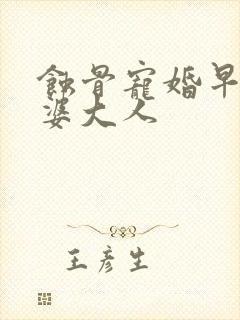 蝕骨寵婚早
婆大人
王彥生